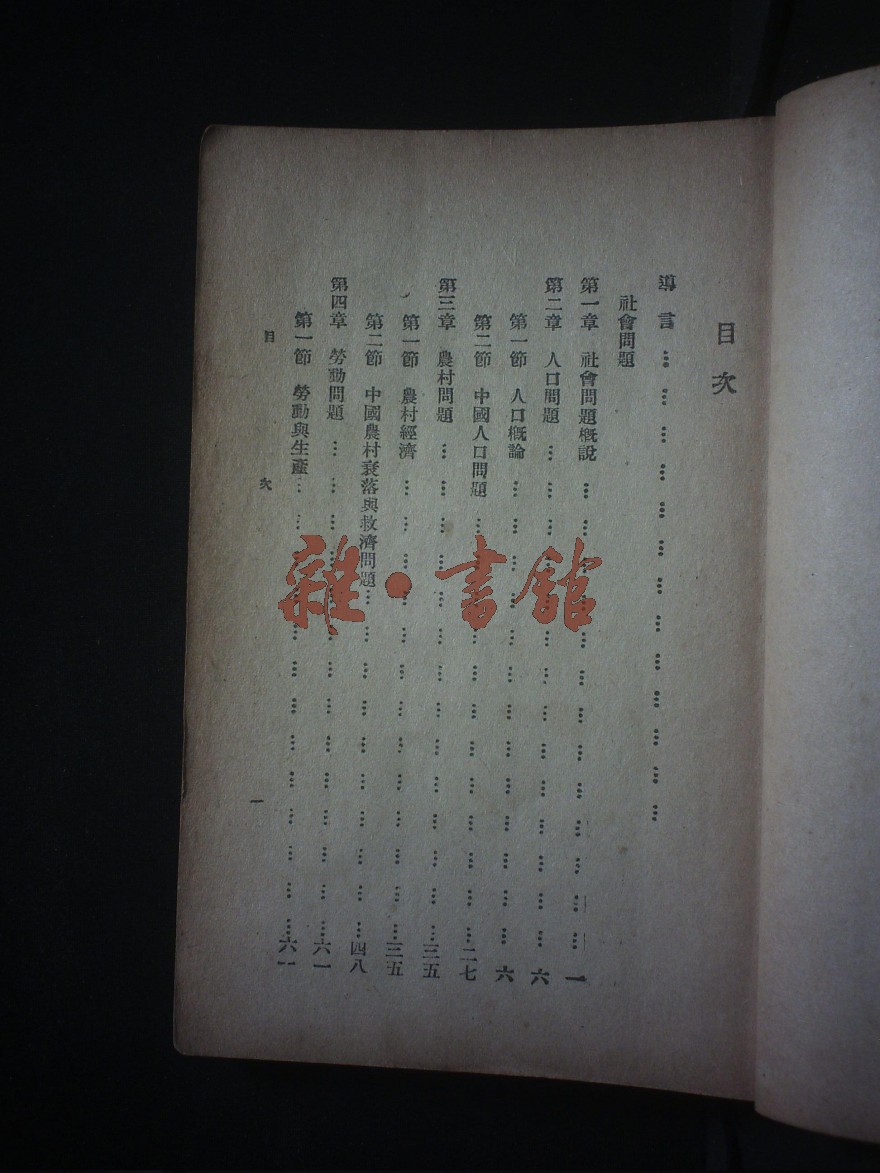 目次
導言 … … … … … … … … … … … … …
社會問題
第一章 社會問題概說 … … … … … … … … … … … … … 一
第二章 人口問題 … … … … … … … … … … … … … … 六
第一節 人口概論 … … … … … … … … … … … … … 六
第二節 中國人口問題 … … … … … … … … … … … … 二七
第三章 農村問題 … … … … … … … … … … … … … … 三五
第一節 農村經濟 … … … … … … … … … … … … … 三五
第二節 中國農村衰落與救濟問題 … … … … … … … … … … 四八
第四章 勞動問題 … … … … … … … … … … … … … … 六一
第一節 勞動與生產 … … … … … … … … … … … … … 六一
目次 一
雜·書館